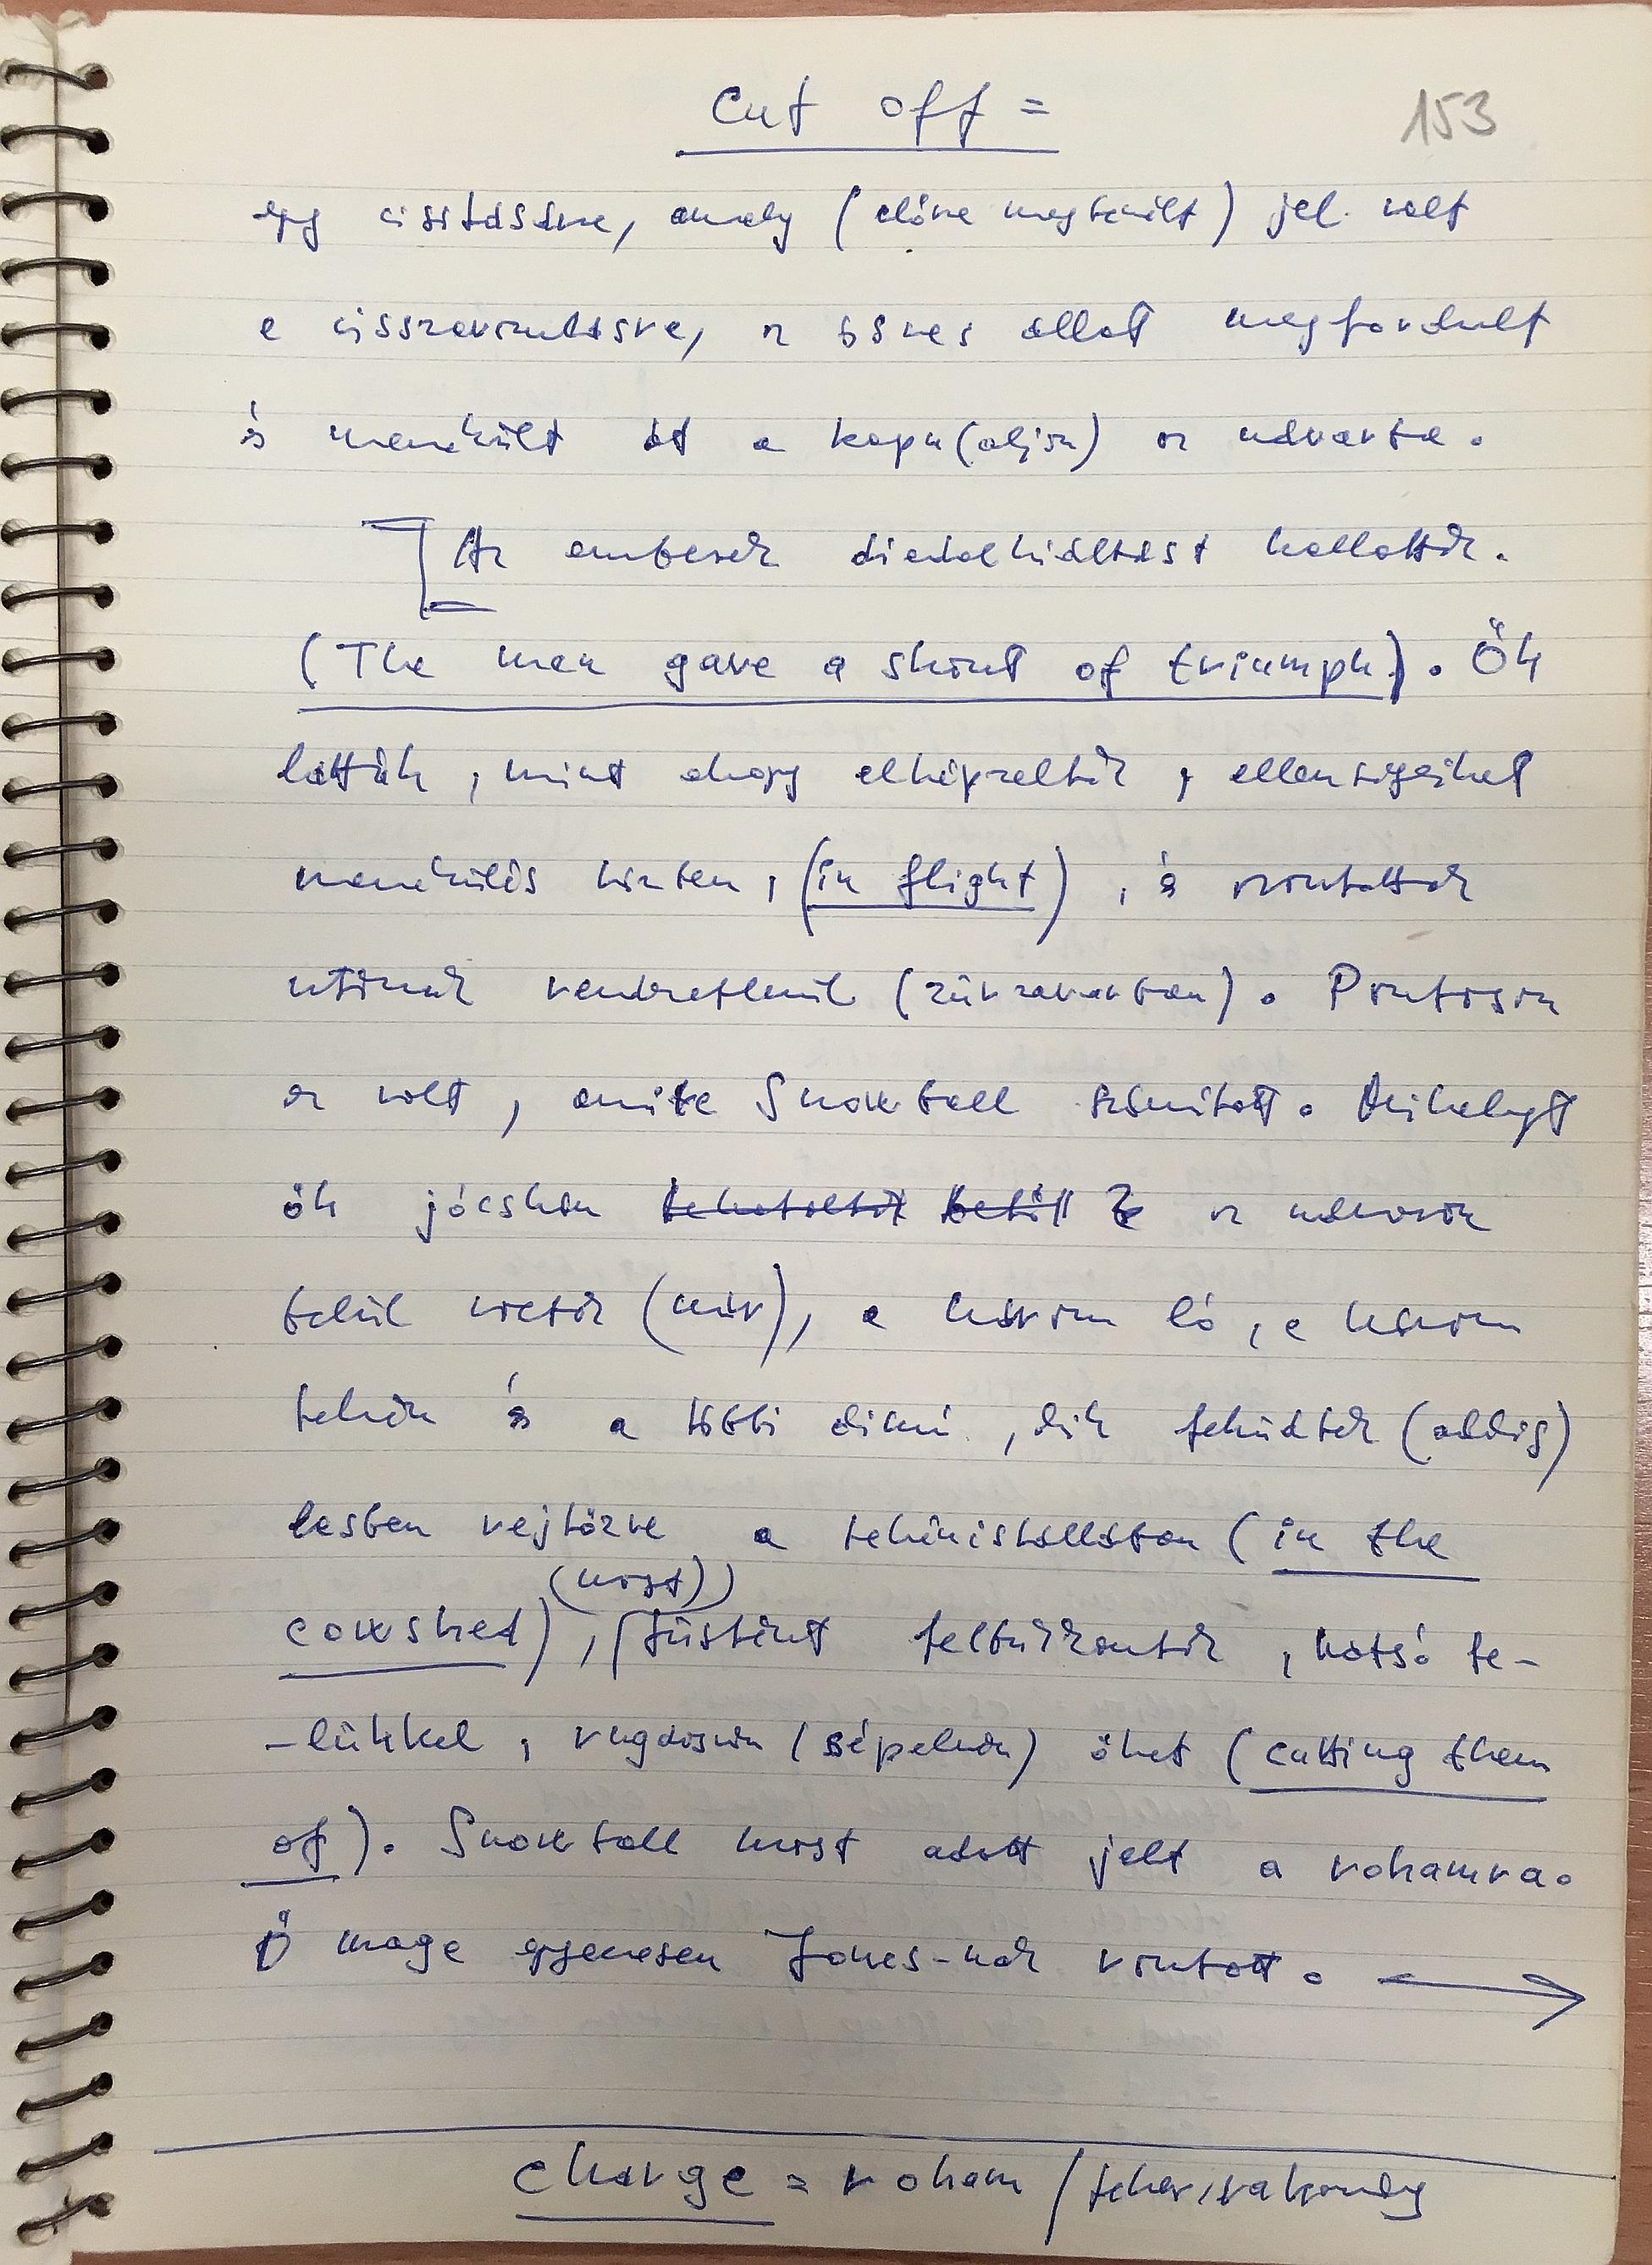 Cut off =
153
egy visításra, amely (előre megbeszélt) jel volt
a visszavonulásra, az összes állat megfordult
és menekült át a kapu(alján) az udvarba.
Az emberek diadalkiáltást hallattak.
(The men gave a shout of triumph). Ők
látták, mint ahogy elképzelték, ellenségeiket
menekülés közben, (in flight), és rontottak
utánuk rendezetlenül (zűrzavarban). Pontosan
ez volt, amire Snowball számított. Mihelyt
ők jócskán az udvaron
belül voltak (már), a három ló, a három
tehén és a többi disznó, akik feküdtek (addig)
lesben rejtőzve a tehénistállóban (in the
(most))
cowshed), (füstént felbukkantak, hátsó fe-
-lükkel, rugdosva (tépelve) őket (cutting them
of). Snowball most adott jelt a rohamra.
Ő maga egyenesen Jones-nak rontott. →
charge = roham / teher, rakomány